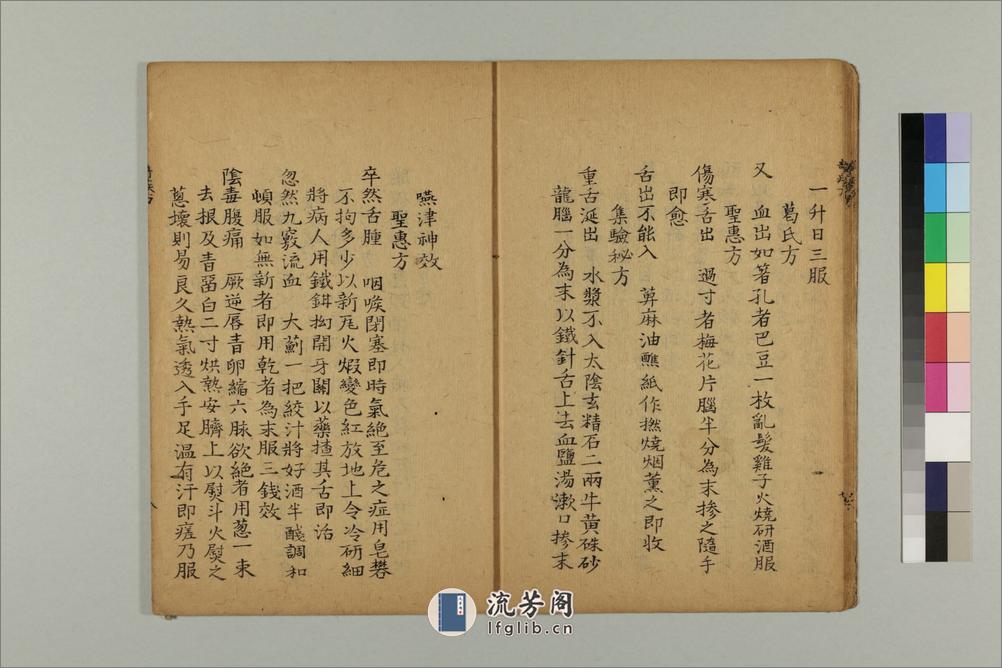 一升日三服
葛氏方
又　血出如箸孔者巴豆一枚亂髮雞子火燒研酒服
聖惠方
傷寒舌出　過寸者梅花片腦半分為末掺之隨手
即愈
舌出不能入　萆麻油蘸紙作撚燒烟薰之即收
集驗秘方
重舌涎出　水漿不入太陰玄精石二兩牛黃硃砂
龍腦一分為末以鐵針舌上去血鹽湯漱口掺末
嚥津神效
聖惠方
卒然舌腫　咽喉閉塞即時氣絕至危之症用皂礬
不拘多少以新瓦火煅變色紅放地上令冷研細
將病人用鐵鉺抝開牙關以藥揸其舌即活
忽然九竅流血　大薊一把絞汁將好酒半醆調和
頓服如無新者即用乾者為末服三錢效
陰毒腹痛　厥逆唇青卵縮六脉欲絕者用葱一束
去根及青留白二寸烘熱安臍上以熨斗火熨之
葱壞則易良久熱氣透入手足溫有汗即瘥乃服
流芳阁
lfglib.cn